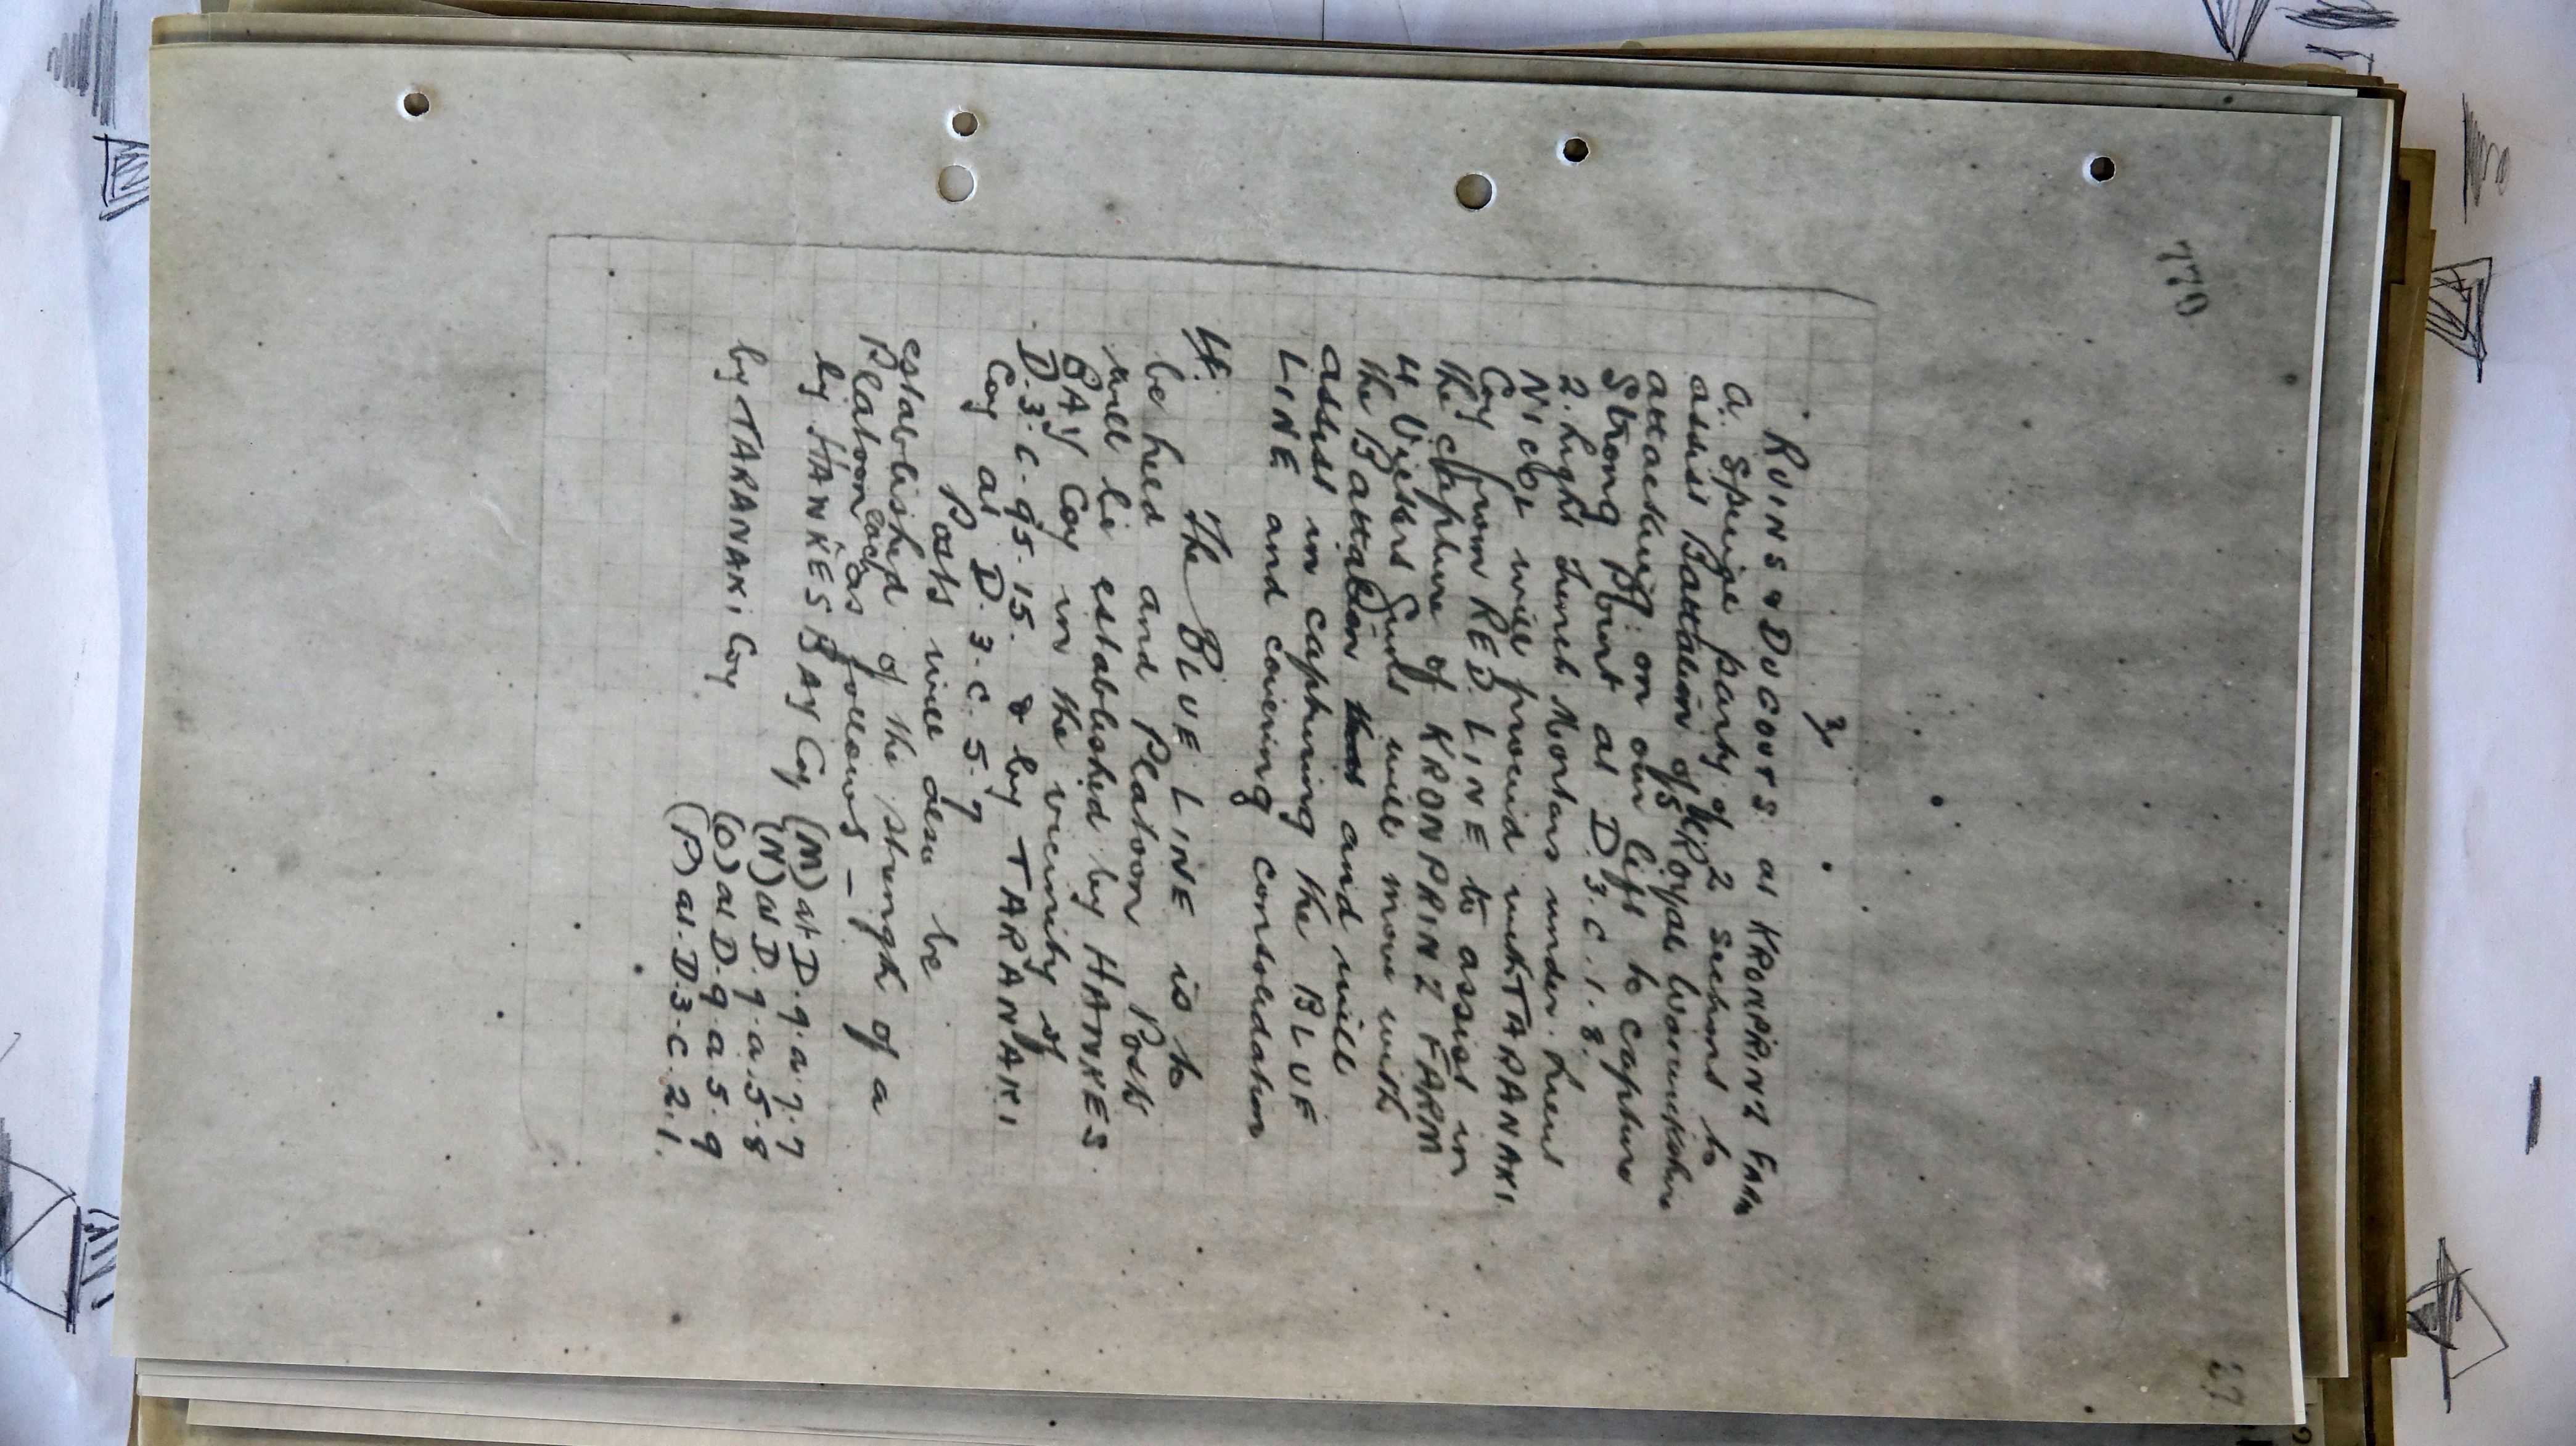 770
27
3
RUINS & DUGOUTS at KRONPRINZ FARM
a. Special party of 2 sections to
assist Battalion of 5th Royal Warwickshire
attacking on our left to capture
Strong Point at D.3.c.1.8.
2. Light Trench Mortars under Lieut
NICOL will proceed with TARANAKI
Coy from RED LINE to assist in
the capture of KRONPRINZ FARM
4 Vickers Guns will move with
the Battalion and will
assist in capturing the BLUE
LINE and covering consolidation
4. The BLUE LINE is to
be held and Platoon Posts
will be established by HAWKES
BAY Coy in the vicinity of
D.3.c.95.15. & by TARANAKI
Coy at D.3.c.5.7
Posts will also be
established of the strength of a
Platoon each as follows –
by HAWKES BAY Coy (M) at D.9.a.7.7
(N) at D.9.a.5.8
(O) at D.9.a.5.9
by TARANAKI Coy (P) at D.3.c.2.1.